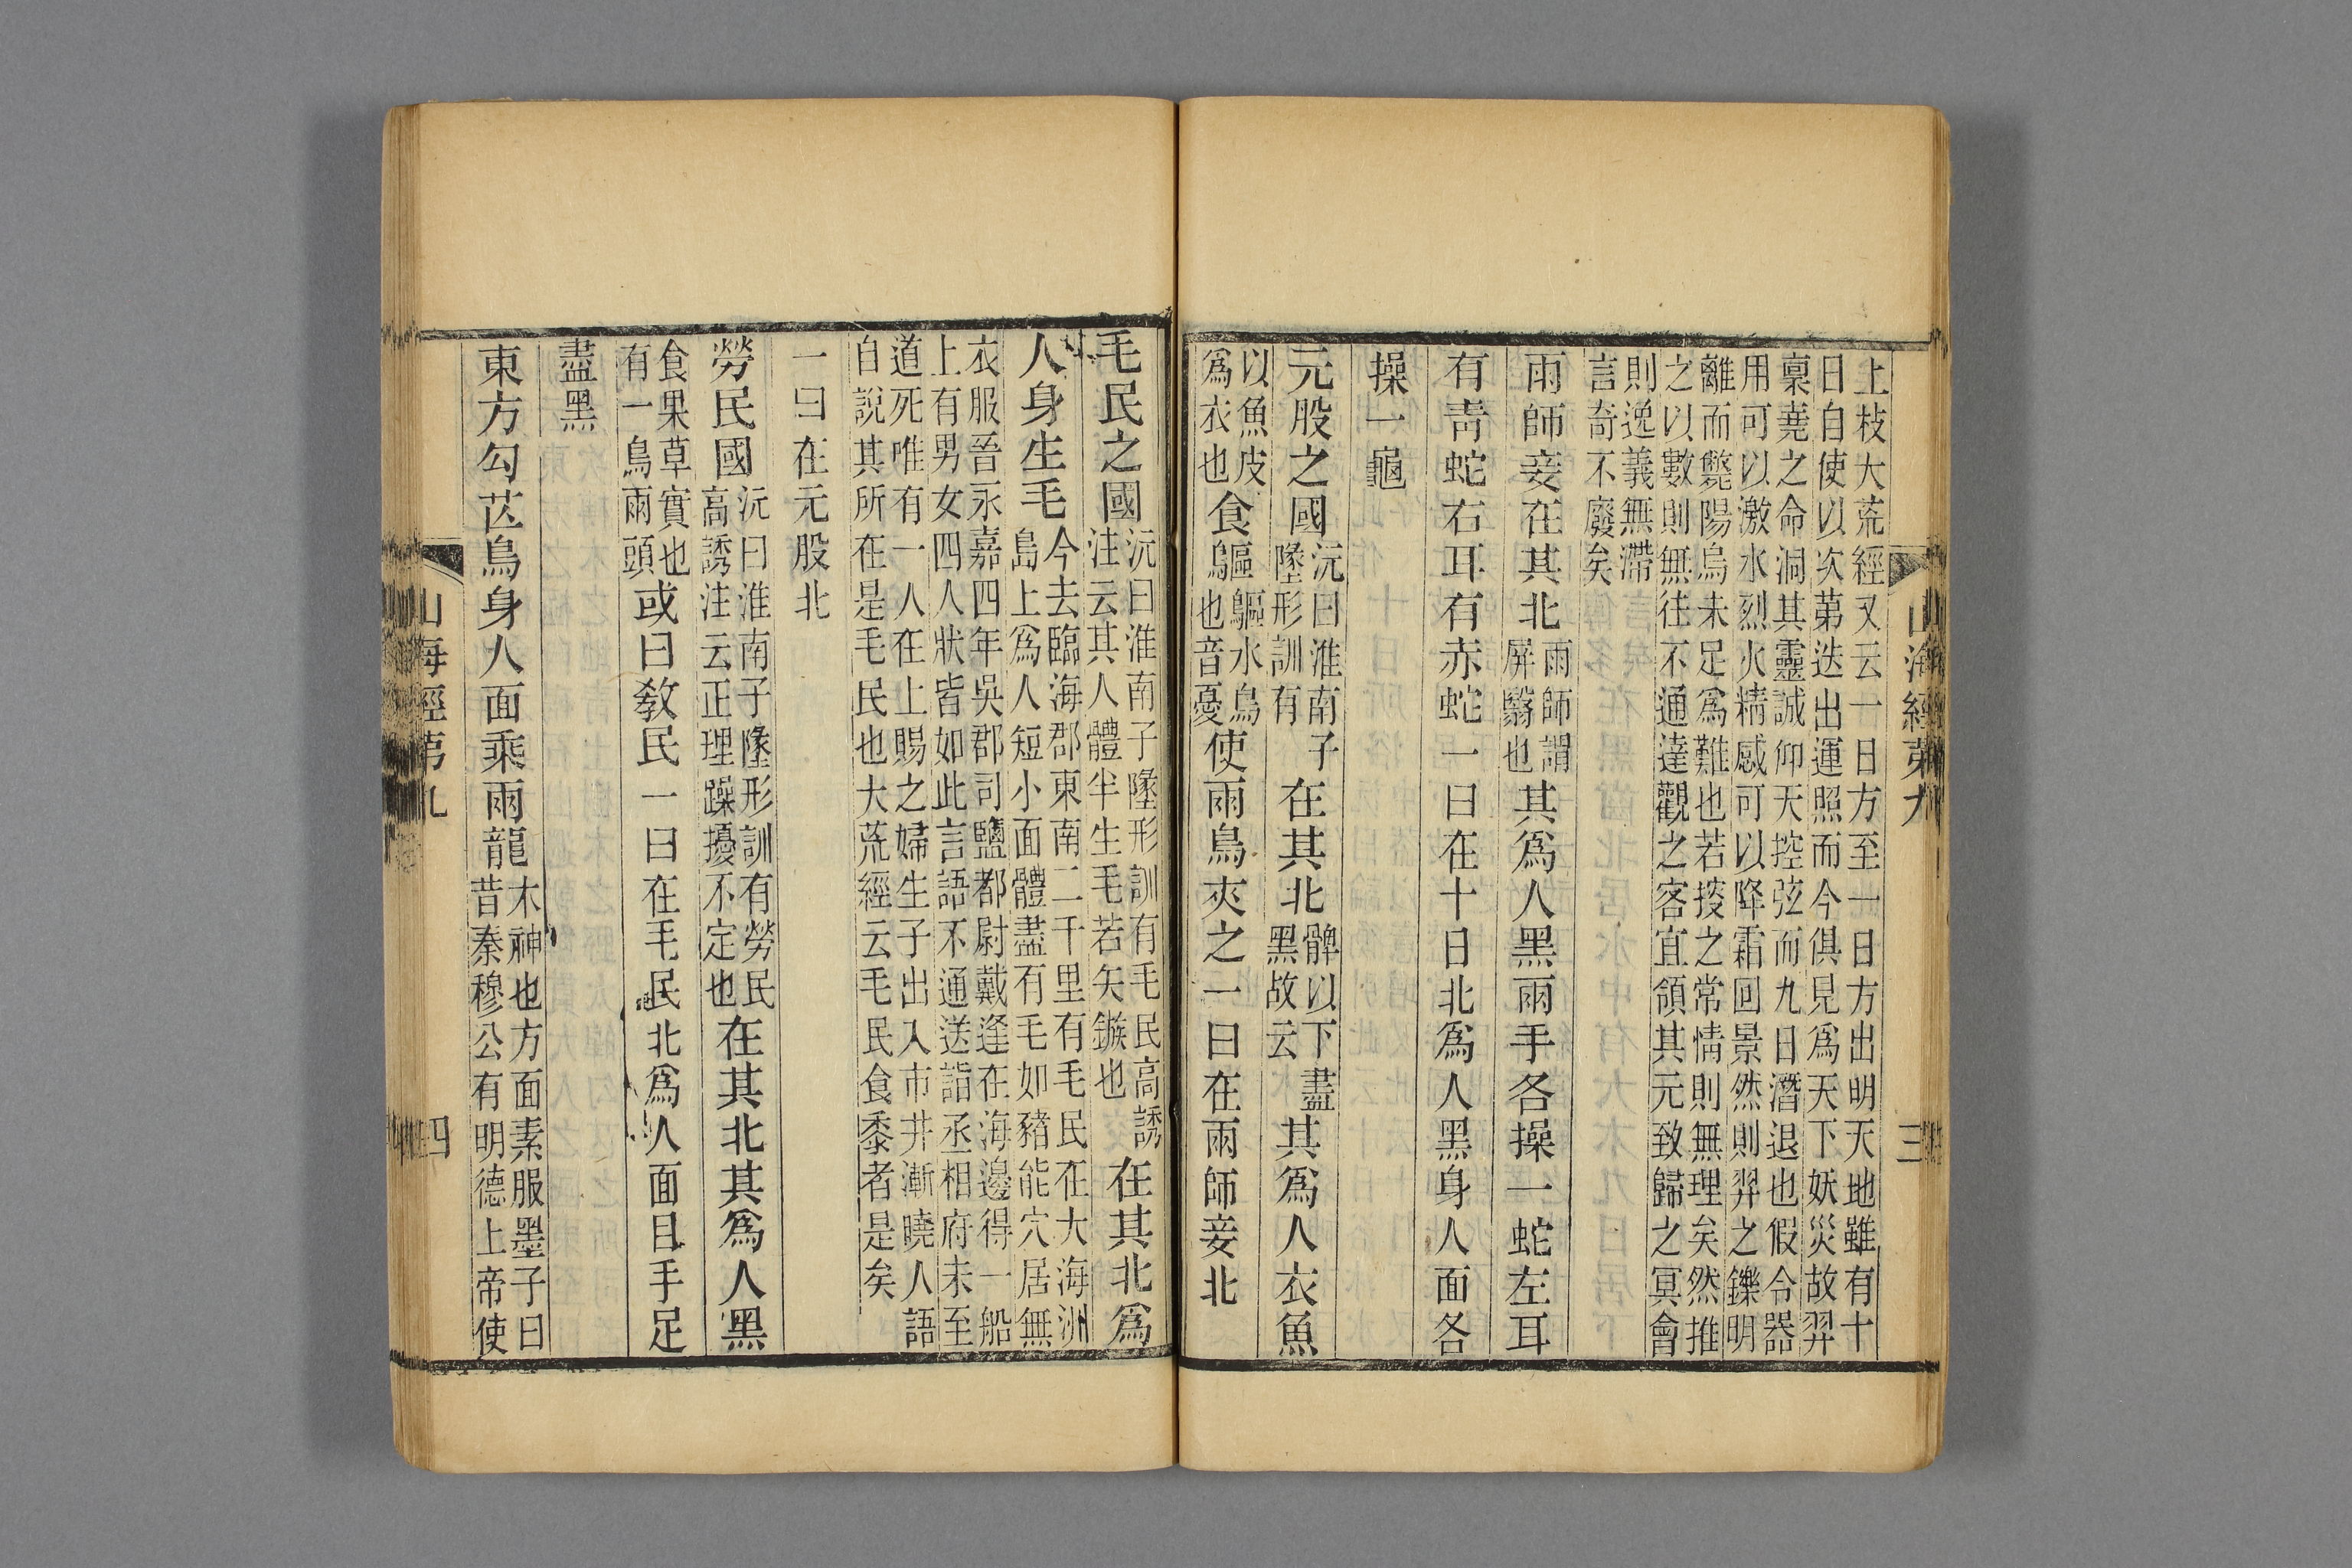 山海經第九
三
上枝大荒經又云一日方至一日方出明天地雖有十
日自使以次第迭出運照而今俱見爲天下妖災故羿
稟堯之命洞其靈誠仰天控弦而九日潛退也假令器
用可以激水烈火精感可以降霜回景然則羿之鑠明
離而斃陽烏未足爲難也若搜之常情則無理矣然推
之以數則無往不通達觀之客宜領其元致歸之冥會
則逸義無滯
言奇不廢矣
雨師妾在其北
雨師謂
屏翳也
其爲人黑兩手各操一蛇左耳
有青蛇右耳有赤蛇一曰在十日北爲人黑身人面各
操一龜
元股之國
沅曰淮南子
墬形訓有
在其北
髀以下盡
黑故云
其爲人衣魚
以魚皮
爲衣也
食
䳼䳼水鳥
也音憂
使兩鳥夾之一曰在雨師妾北
毛民之國
沅曰淮南子墬形訓有毛民高誘
注云其人體半生毛若矢鏃也
在其北爲
人身生毛
今去臨海郡東南二千里有毛民在大海洲
島上爲人短小面體盡有毛如豬能穴居無
衣服晉永嘉四年吳郡司鹽都尉戴逢在海邊得一船
上有男女四人狀皆如此言語不通送詣丞相府未至
道死唯有一人在上賜之婦生子出入市井漸曉人語
自說其所在是毛民也大荒經云毛民食黍者是矣
一曰在元股北
勞民國
沅曰淮南子墬形訓有勞民
高誘注云正理躁擾不定也
在其北其爲人黑
食果草實也
有一鳥兩頭
或曰教民一曰在毛民北爲人面目手足
盡黑
東方勾芒鳥身人面乘兩龍
木神也方面素服墨子曰
昔秦穆公有明德上帝使
山海經第九
四